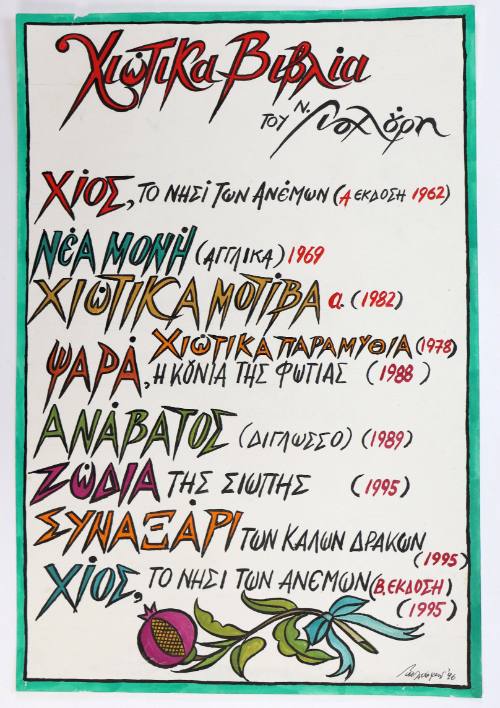 Χιώτικα Βιβλία
του Ν. Γιαλούρη
ΧίΟΣ, ΤΟ ΝΗΣΙ Των ΑΝΕΜΩΝ (Α ΕΚΔΟΣΗ 1962)
ΝΕΑ ΜΟΝΗ (ΑΓΓΛΙΚΑ) 1969
ΧΙΩΤΙΚΑ ΜΟΤΙΒΑ α. (1982)
ΧΙΩΤΙΚΑ ΠΑΡΑΜΥΘΙΑ (1978)
ΨΑΡΑ, Η ΚΟΝΙΑ ΤΗΣ ΦΩΤΙΑΣ (1988)
ΑΝΑΒΑΤΟΣ (ΔΙΓΛΩΣΣΟ) (1989)
ΖΩΔΙΑ ΤΗΣ ΣΙΩΠΗΣ (1995)
ΣΥΝΑΞΑΡΙ ΤΩΝ ΚΑΛΩΝ ΔΡΑΚΩΝ
(1995)
ΧΙΟΣ, ΤΟ ΝΗΣΙ ΤΩΝ ΑΝΕΜΩΝ (Β. ΕΚΔΟΣΗ)
(1995)